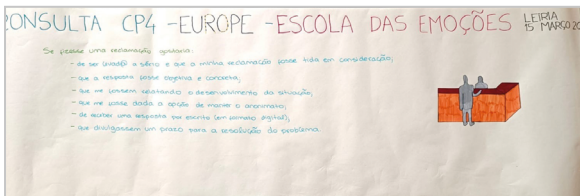 CONSULTA CP4 -EUROPE -ESCOLA DAS EMOÇÕES LEIRIA
15 MARÇO 20
Se fizesse uma reclamação gostaria:
- de ser levad@ a sério e que a minha reclamação fosse tida em consideração;
- que a resposta fosse objetiva e concreta;
- que me fossem relatando o desenvolvimento da situação;
- que me fosse dada a opção de manter o anonimato;
- de receber uma resposta por escrito (em formato digital);
- que divulgassem um prazo para a resolução do problema.